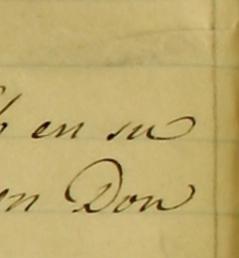 en su
en Don